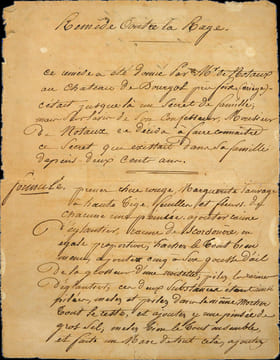 Remède Contre la Rage.
ce remede a été donné Par Mr. de Notaux
au chateau de Bourgol
c'était jusque là un Secret de famille,
mais Sur l'avis de Son Confesseur, Monsieur
De Notaux se décida à faire connaître
ce Secret que existait dans Sa famille
depuis deux Cent ans.
formule. prener rhue rouge, Marguerite Sauvage
à haute tige feuilles et fleurs de
chacune une poignée, ajouter racine
d'églantier, racine de Scordonere en
egale proportion, hacher le tout bien
menu, ajouter cinq à Six gousse d'ail
de la grosseur d'une noisette, piler la racine
d'églantier, ces deux Substances étant
pilées, meler et piler dans le même Mortier
tout le reste, et ajouter y une pincée de
gros Sel, meler bien le tout ensemble,
et faite un Marc de tout cela, ajouter